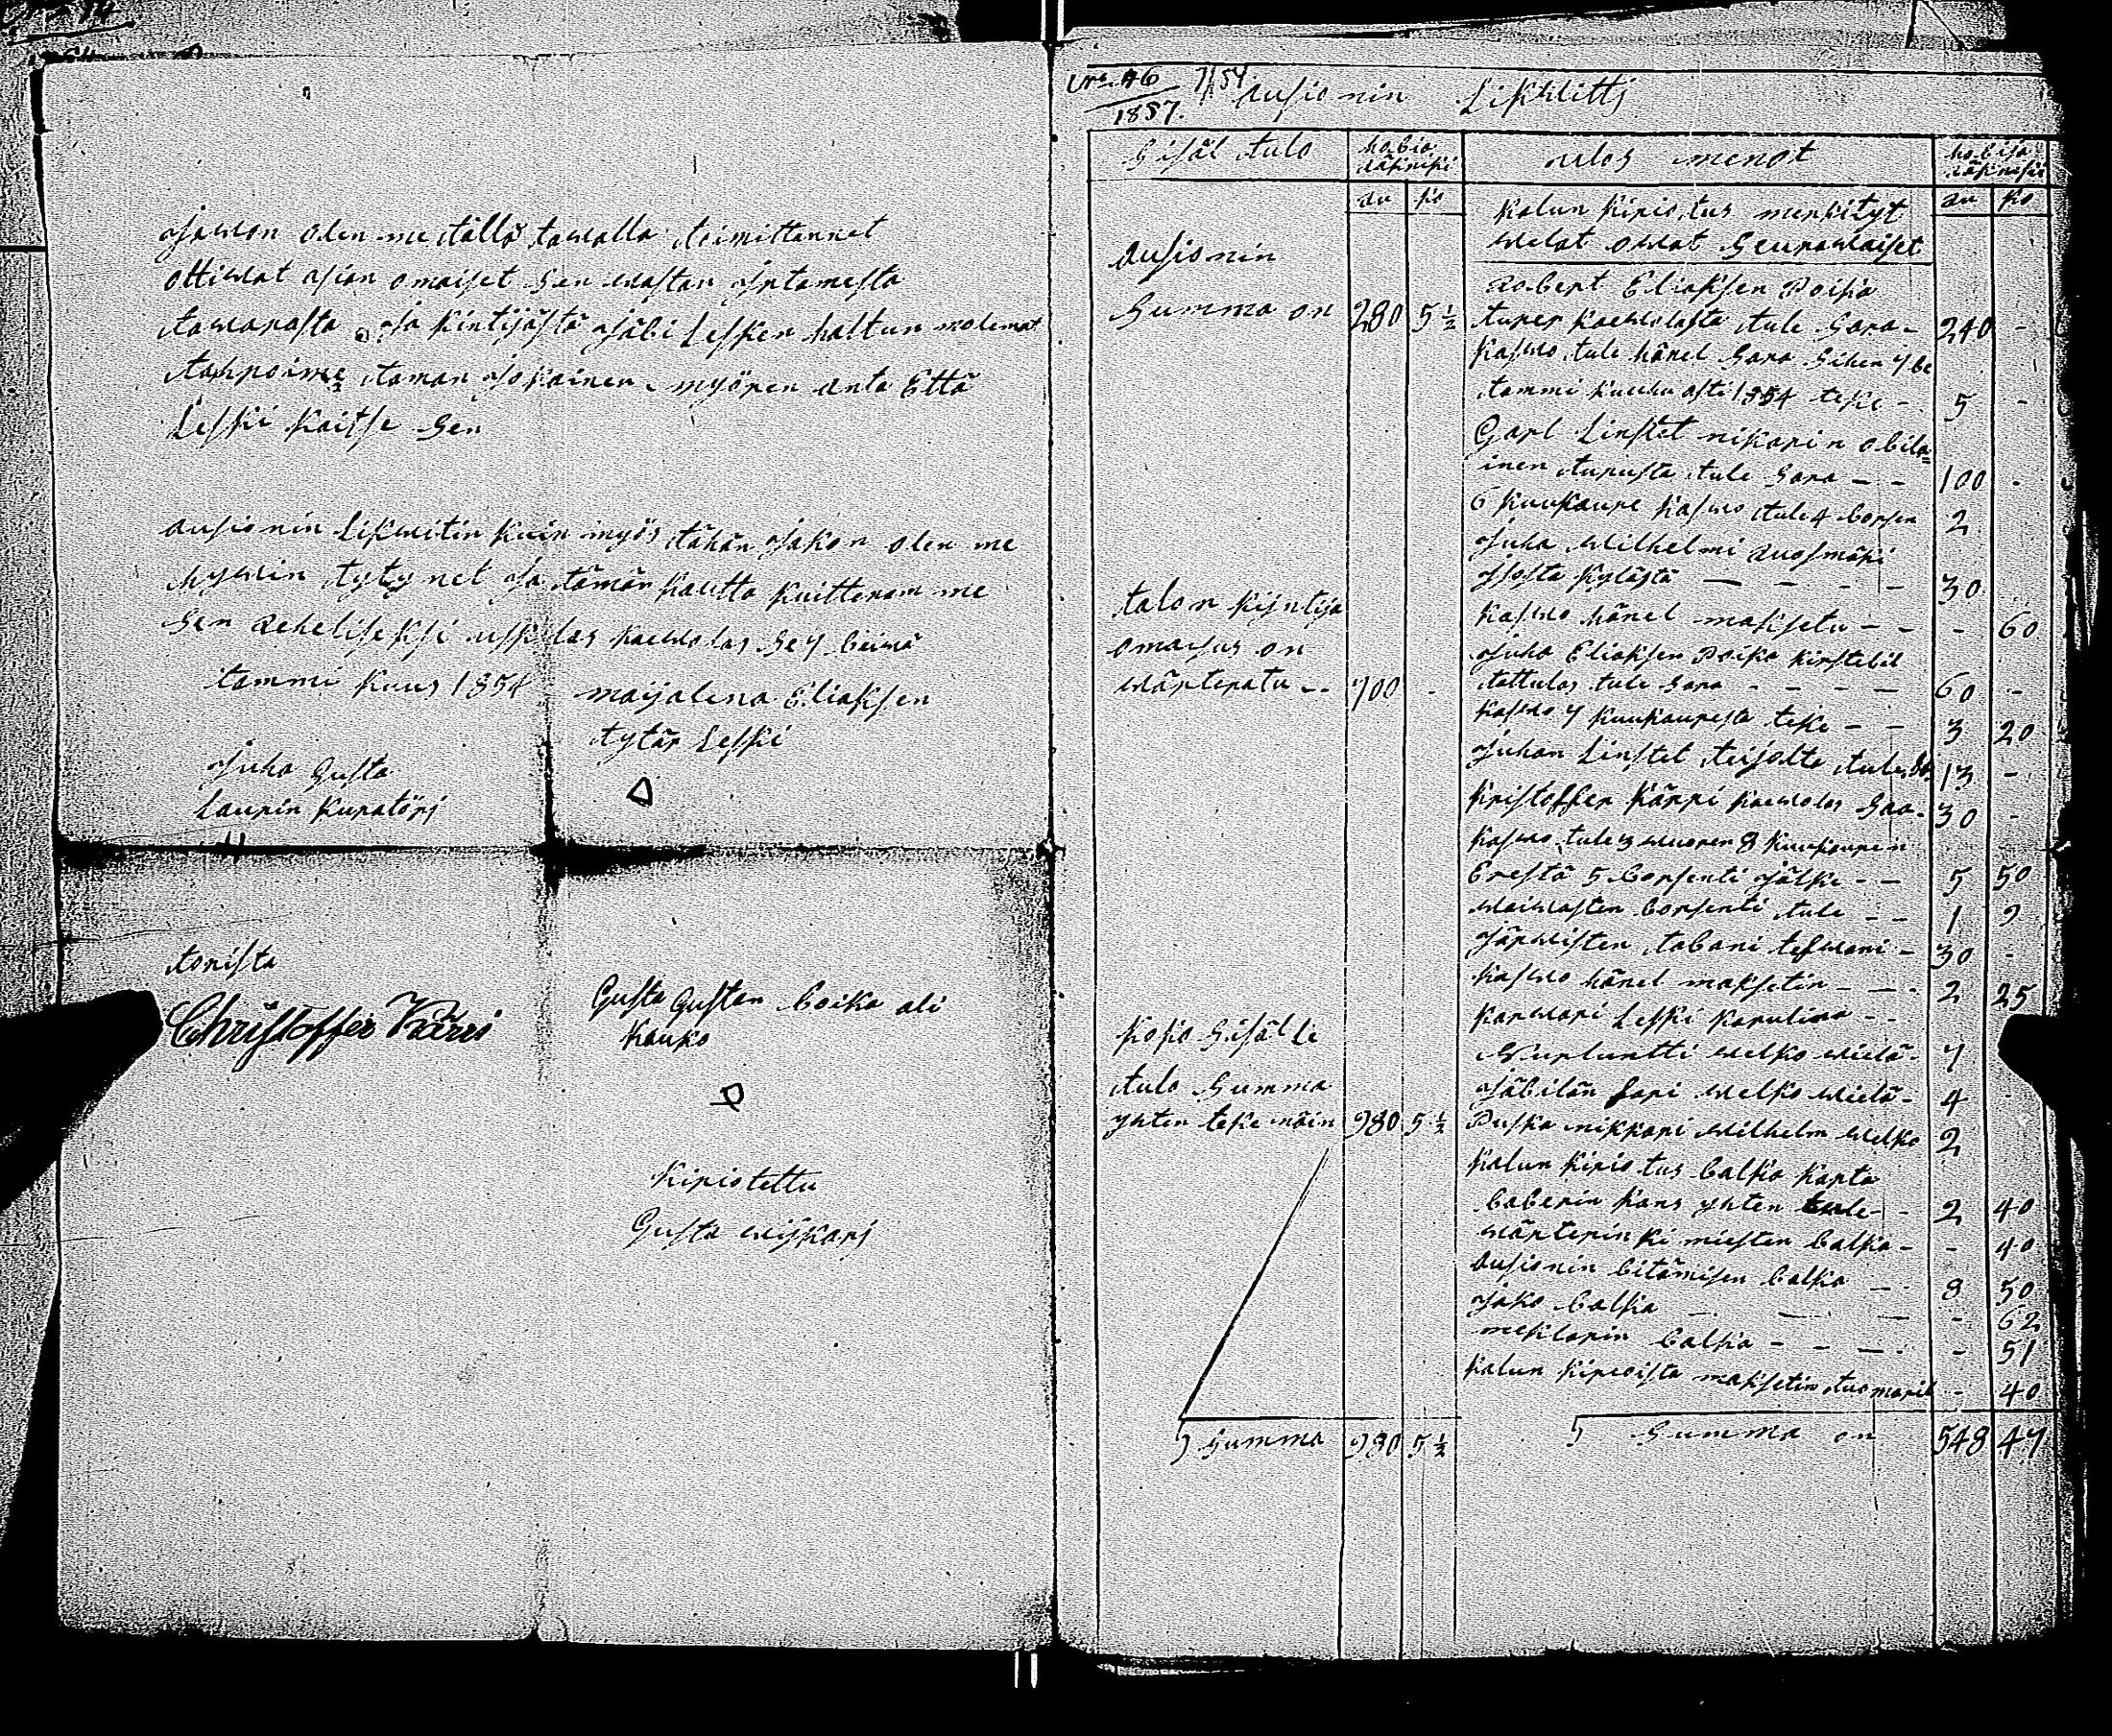 Jawon olen me tällä tawalla toimittannet
ottiwat asian omaiset Sen wastan Jrtamesta
tawarasta Ja kintijästä Jäbi Lesken haltun molemat
tahpoime taman Jokainen myören anta Että
Leski kaitse Sen
ausionin Likwitin kuin myös tähän Jakon olen me
hywin tytynet Ja tämän kautta kuitteram me
Sen rehelisseksi kaewolas Se 7 beiwä
tammi kuus 1854
maijalena Eliaksen
tytär Leski
Juha Gusta
Laurin kuratöri
toristа
Christoffer Kärri
Gusta Gustan boika ali
Kauko
kiriotettu
Gusta wiskari
No 46 7/54
1857.
ausionin Likwitti
Sisäl tulo
hobia
ulos menot
hobia
ru ko
ru ko
kalun kirio tus merkityt
welat owat Seurawaiset
ausionin
Summa on 280 5 1/2
Robert Eliaksen Poika
kaewolasta tule Sara - 240 -
kaswo tule hänel Sara Sihen 7 be
tammi kuuhu asti 1854 teke - 5 -
Carl Linstet nikarin obila=
inen turusta tule Sara - - 100 -
6 kuukaure kaswo tule 4 borsen 2
Juha Wilhelmi
kylästä - - - 30
talon kijntijä
omaisus on
wärteratu - - 700 -
kaswo hänel maksetu - - - 60
Juha Eliaksen Poika
tattulas tule Sara - - - - 60 -
kaswo 7 kuukauresta teke - - 3 20
Juhan Linstet tule 13 -
kristoffer Kärri kaewolas Saa - 30 -
kaswo tule 3 wuoren 8 kuukauren
Erestä 5 borsenti jälke - - 5 50
waiwasten borsenti tule - - 1 9
Järwisten tabani - 30 -
kaswo hänel maksetin - - - 2 25
karwari Leski karulina - -
welko wielä - 7
koko Sisälle
tulo Summa
yhten teke näin 980 5 1/2
Jäbilän Sari welko wielä - 4 -
Puska nikkari Wilhelm welko 2
kalun kirio tus balka karta
baberin kans yhten tule - - 2 40
wärterinki miesten balka - - 40
ausionin bitämisen balka - - 8 50
Jako balka - - - - 62
meklarin balka - - - - 51
kalun kirioista maksetin tuomaril - 40
Summa 980 5 1/2
Summa on 548 47